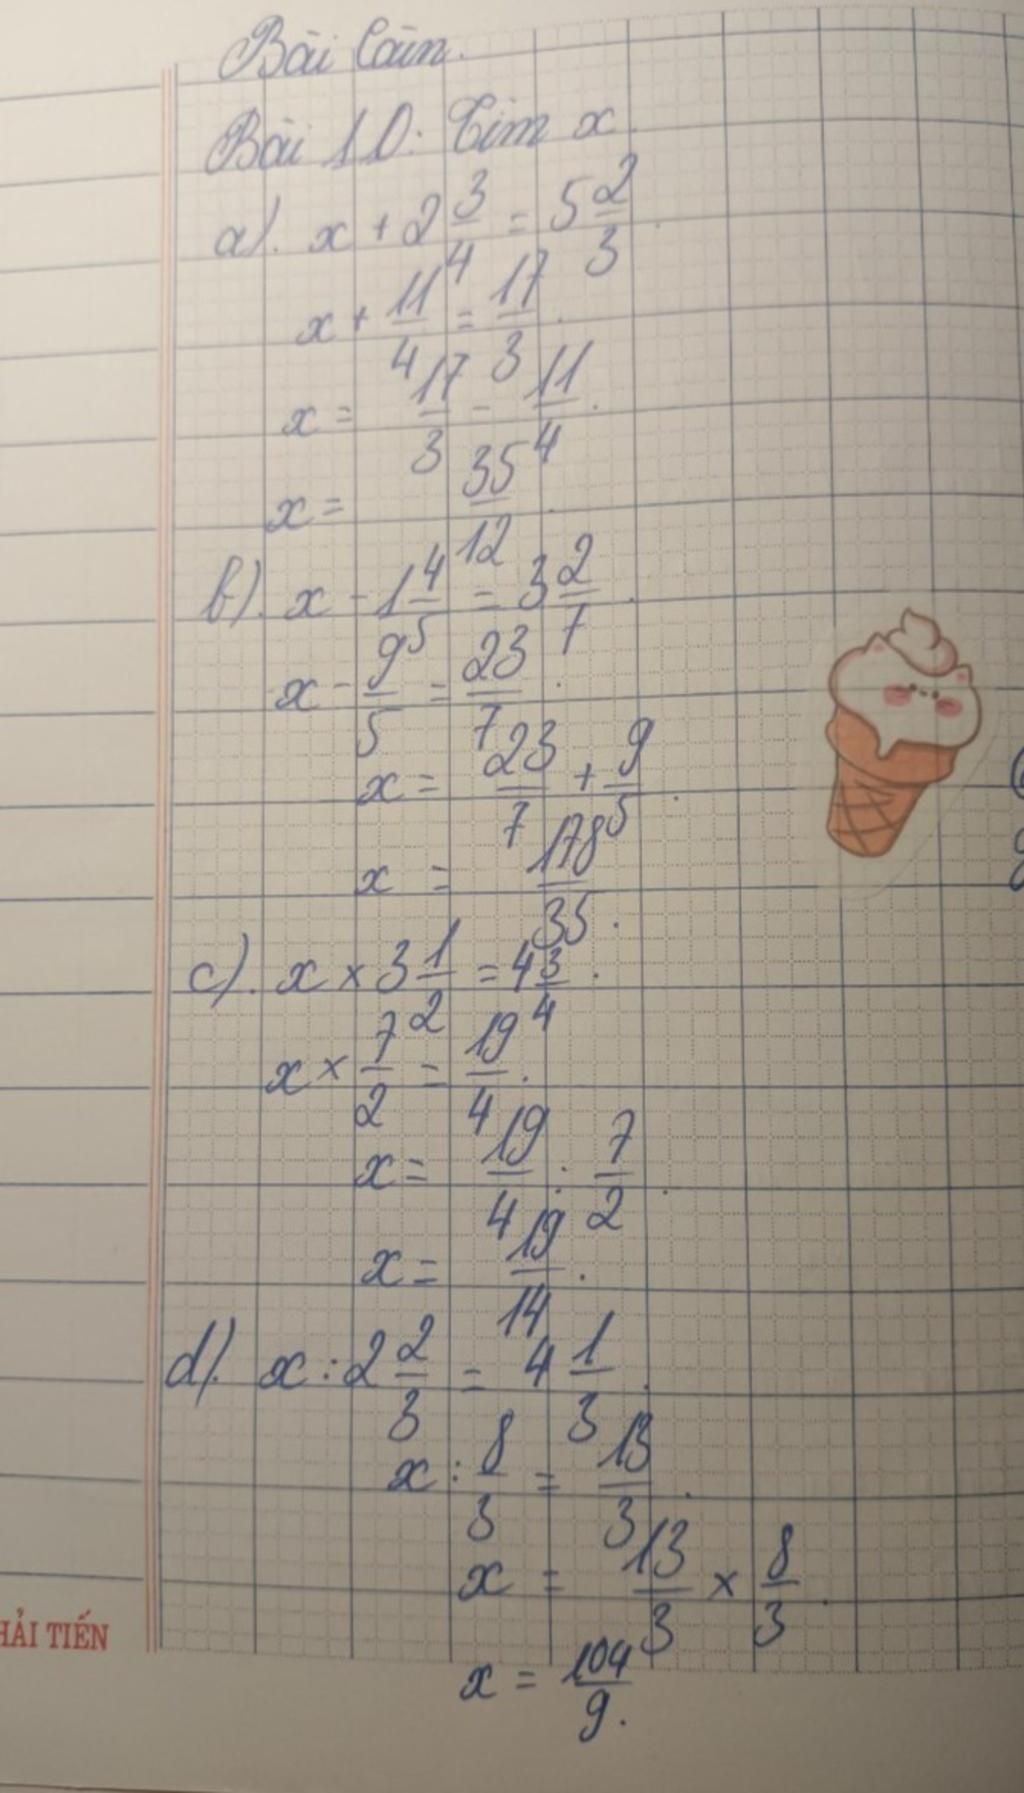 Bài làm.
Bài 10: Tìm x
a). x + 2 3/4 = 5 2/3.
x + 11/4 = 17/3.
x = 17/3 - 11/4.
x = 35/12.
b). x - 1 4/5 = 3 2/7.
x - 9/5 = 23/7.
x = 23/7 + 9/5.
x = 178/35.
c). x × 3 1/2 = 4 3/4.
x × 7/2 = 19/4.
x = 19/4 : 7/2.
x = 19/14.
d). x : 2 2/3 = 4 1/3.
x : 8/3 = 13/3.
x = 13/3 × 8/3.
x = 104/9.
HẢI TIẾN